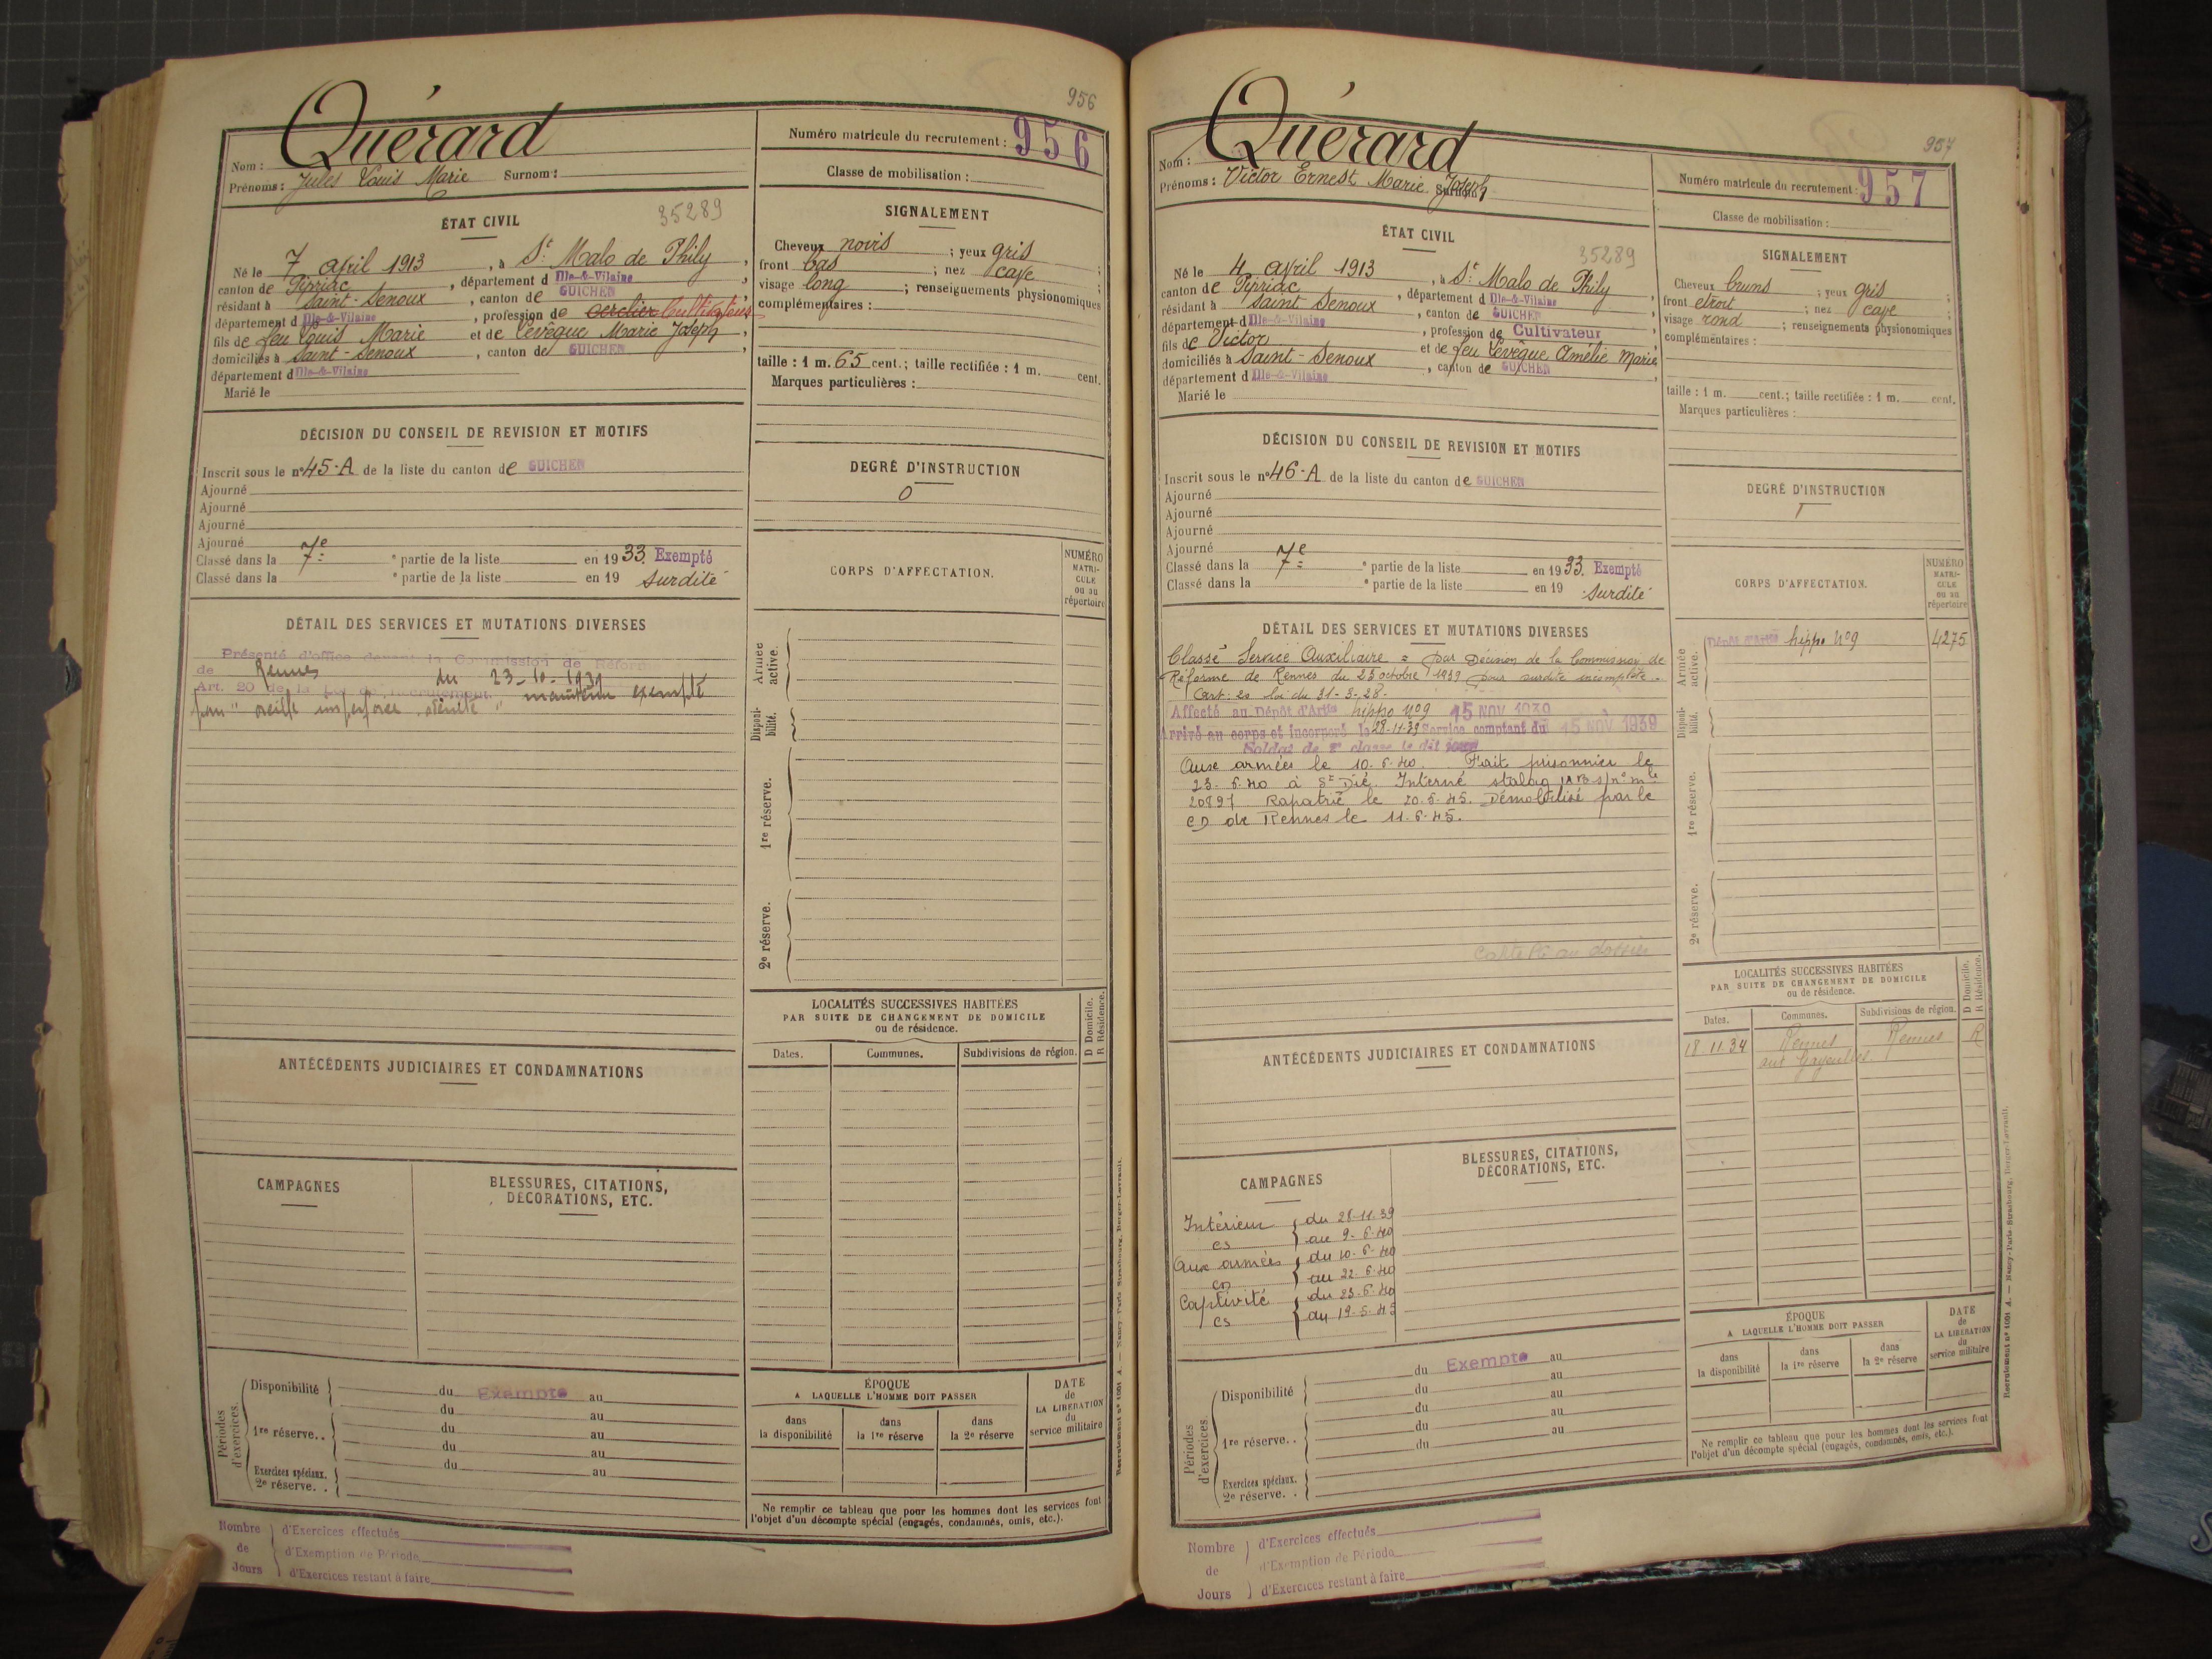 956
Quérard
Nom :
Prénoms : Jules Louis Marie Surnom :
Numéro matricule du recrutement : 956
Classe de mobilisation :
ÉTAT CIVIL
35289
Né le 7 avril 1913, à St Malo de Phily,
canton de Pipriac, département d Ille-&-Vilaine
résidant à Saint-Senoux, canton de GUICHEN
département d Ille-&-Vilaine, profession de cerclier Cultivateur
fils de feu Louis Marie et de Levêque Marie Joseph,
domiciliés à Saint-Senoux, canton de GUICHEN
département d Ille-&-Vilaine
Marié le
SIGNALEMENT
Cheveux noirs ; yeux gris ;
front bas ; nez cave ;
visage long ; renseignements physionomiques
complémentaires :
taille : 1 m. 65 cent.; taille rectifiée : 1 m. cent.
Marques particulières :
DÉCISION DU CONSEIL DE REVISION ET MOTIFS
Inscrit sous le n° 45-A de la liste du canton de GUICHEN
Ajourné
Ajourné
Ajourné
Ajourné
Classé dans la 7e e partie de la liste en 1933. Exempté
Classé dans la e partie de la liste en 19 surdité
DEGRÉ D'INSTRUCTION
0
CORPS D'AFFECTATION.
NUMÉRO
MATRI-
CULE
ou au
répertoire
DÉTAIL DES SERVICES ET MUTATIONS DIVERSES
Présenté d'office devant la Commission de Réforme
de Rennes du 23-10-1939
Art. 20 de la loi de recrutement maintenu exempté
pour
Armée active.
Disponi-
bilité.
1re réserve.
2e réserve.
LOCALITÉS SUCCESSIVES HABITÉES
PAR SUITE DE CHANGEMENT DE DOMICILE
ou de résidence.
D Domicile.
R Résidence.
Dates.
Communes.
Subdivisions de région.
ANTÉCÉDENTS JUDICIAIRES ET CONDAMNATIONS
CAMPAGNES
BLESSURES, CITATIONS,
DÉCORATIONS, ETC.
Périodes d'exercices.
Disponibilité
du Exempté au
du au
1re réserve. .
du au
du au
du au
Exercices spéciaux.
2e réserve. .
ÉPOQUE
A LAQUELLE L'HOMME DOIT PASSER
dans
la disponibilité
dans
la 1re réserve
dans
la 2e réserve
DATE
de
LA LIBÉRATION
du
service militaire
Ne remplir ce tableau que pour les hommes dont les services font
l'objet d'un décompte spécial (engagés, condamnés, omis, etc.).
Nombre
de
Jours
d'Exercices effectués
d'Exemption de Période
d'Exercices restant à faire
Recrutement n° 1091 A. — Nancy-Paris-Strasbourg, Berger-Levrault.
957
Quérard
Nom :
Prénoms : Victor Ernest Marie Joseph Surnom
Numéro matricule du recrutement : 957
Classe de mobilisation :
ÉTAT CIVIL
35289
Né le 4 avril 1913, à St Malo de Phily,
canton de Pipriac, département d Ille-&-Vilaine
résidant à Saint Senoux, canton de GUICHEN
département d Ille-&-Vilaine, profession de Cultivateur,
fils de Victor et de feu Levêque Amélie Marie
domiciliés à Saint-Senoux, canton de GUICHEN,
département d Ille-&-Vilaine
Marié le
SIGNALEMENT
Cheveux bruns ; yeux gris ;
front étroit ; nez cave ;
visage rond ; renseignements physionomiques
complémentaires :
taille : 1 m. cent.; taille rectifiée : 1 m. cent.
Marques particulières :
DÉCISION DU CONSEIL DE REVISION ET MOTIFS
Inscrit sous le n° 46-A de la liste du canton de GUICHEN
Ajourné
Ajourné
Ajourné
Ajourné
Classé dans la 7e e partie de la liste en 1933. Exempté
Classé dans la e partie de la liste en 19 surdité
DEGRÉ D'INSTRUCTION
CORPS D'AFFECTATION.
NUMÉRO
MATRI-
CULE
ou au
répertoire
DÉTAIL DES SERVICES ET MUTATIONS DIVERSES
Classé Service Auxiliaire = par Décision de la Commission de
Réforme de Rennes du 23 octobre 1939 pour surdité incomplète.
(art: 20 loi du 31-3-28.
Affecté au Dépôt d'Artie hippo n°9 15 NOV 1939
Arrivé au corps et incorporé le 28-11-39 Service comptant du 15 NOV 1939
Soldat de 2e classe le dit jour
Aux armées le 10.6.40. Fait prisonnier le
23.6.40 à St Dié. Interné stalag s/n° mle
20897 Rapatrié le 20.5.45. Démobilisé par le
CD de Rennes le 11.6.45.
au dossier
Armée active.
Dépôt d'Artie hippo n°9
4275
Disponi-
bilité.
1re réserve.
2e réserve.
LOCALITÉS SUCCESSIVES HABITÉES
PAR SUITE DE CHANGEMENT DE DOMICILE
ou de résidence.
D Domicile.
R Résidence.
Dates.
Communes.
Subdivisions de région.
18 11 34 Rennes Rennes R
aux Gayeulles
ANTÉCÉDENTS JUDICIAIRES ET CONDAMNATIONS
CAMPAGNES
BLESSURES, CITATIONS,
DÉCORATIONS, ETC.
Intérieur du 28-11-39
CS au 9-6-40
Aux armées du 10-6-40
CD au 22-6-40
Captivité du 23-6-40
CS au 19-5-45
Périodes d'exercices.
Disponibilité
du Exempté au
du au
1re réserve. .
du au
du au
du au
Exercices spéciaux.
2e réserve. .
ÉPOQUE
A LAQUELLE L'HOMME DOIT PASSER
dans
la disponibilité
dans
la 1re réserve
dans
la 2e réserve
DATE
de
LA LIBÉRATION
du
service militaire
Ne remplir ce tableau que pour les hommes dont les services font
l'objet d'un décompte spécial (engagés, condamnés, omis, etc.).
Nombre
de
Jours
d'Exercices effectués
d'Exemption de Période
d'Exercices restant à faire
Recrutement n° 1091 A. — Nancy-Paris-Strasbourg, Berger-Levrault.